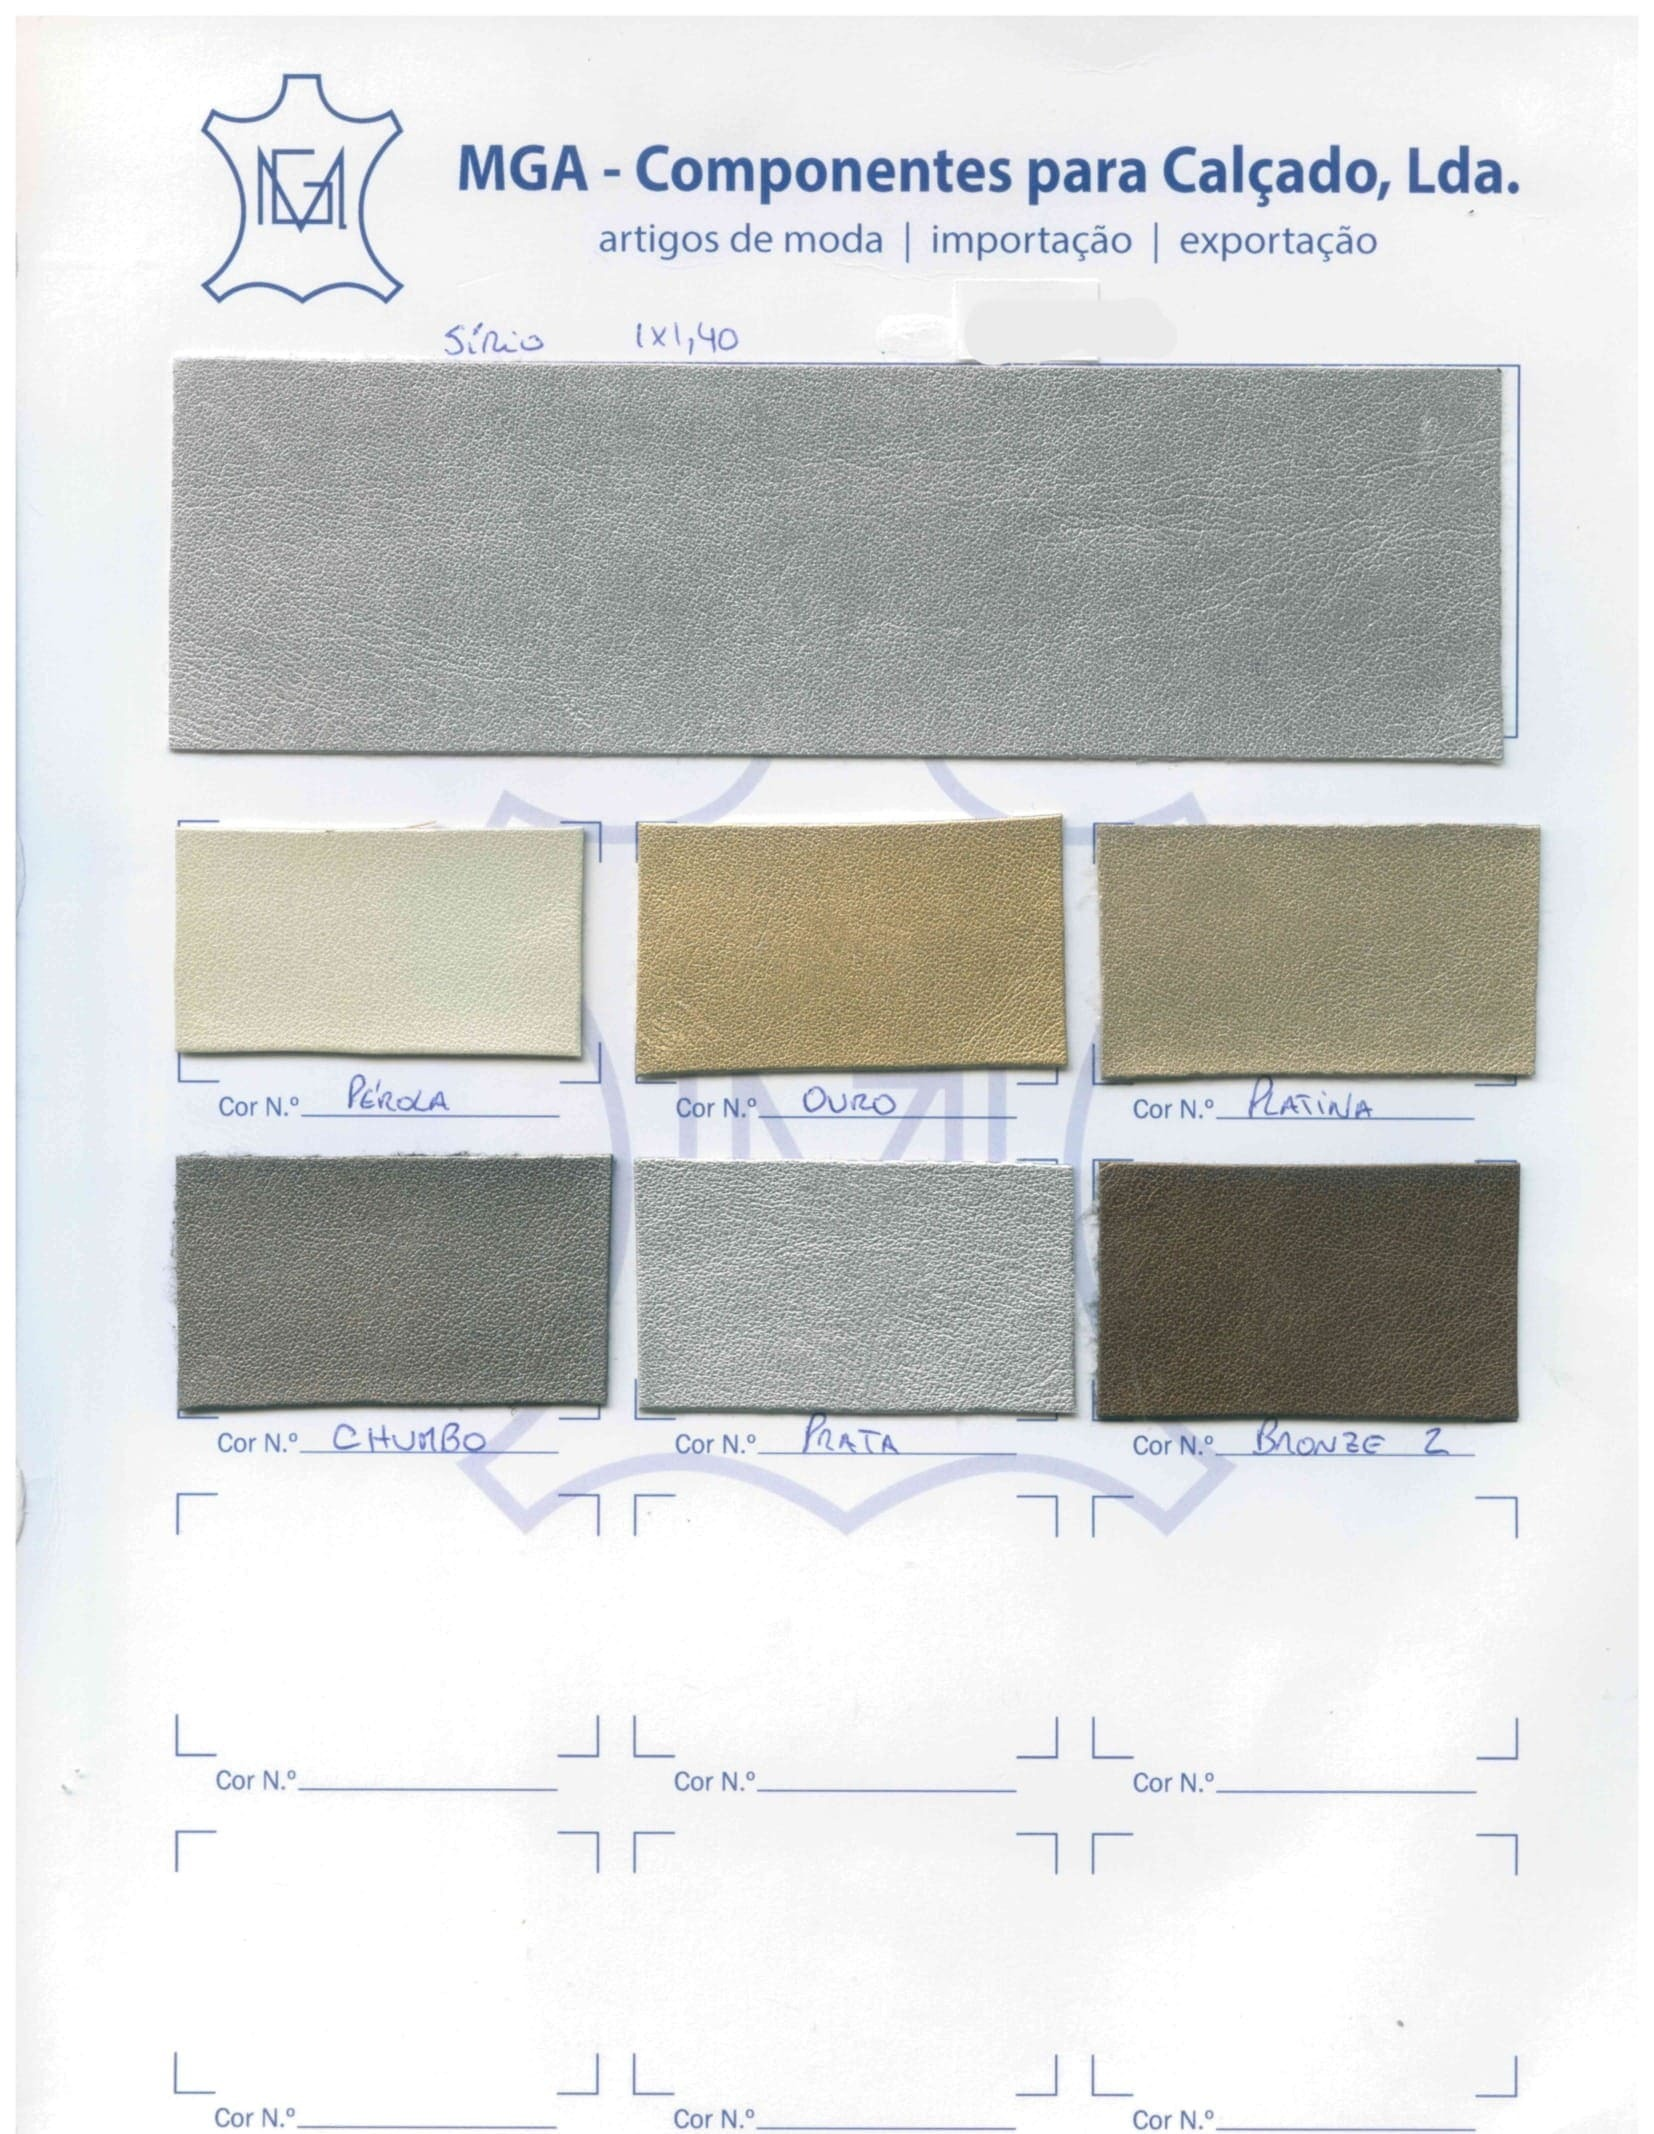 MGA
MGA - Componentes para Calçado, Lda.
artigos de moda | importação | exportação
SÍRIO 1x1,40
Cor N.º PÉROLA
Cor N.º OURO
Cor N.º PLATINA
Cor N.º CHUMBO
Cor N.º PRATA
Cor N.º BRONZE 2
Cor N.º
Cor N.º
Cor N.º
Cor N.º
Cor N.º
Cor N.º